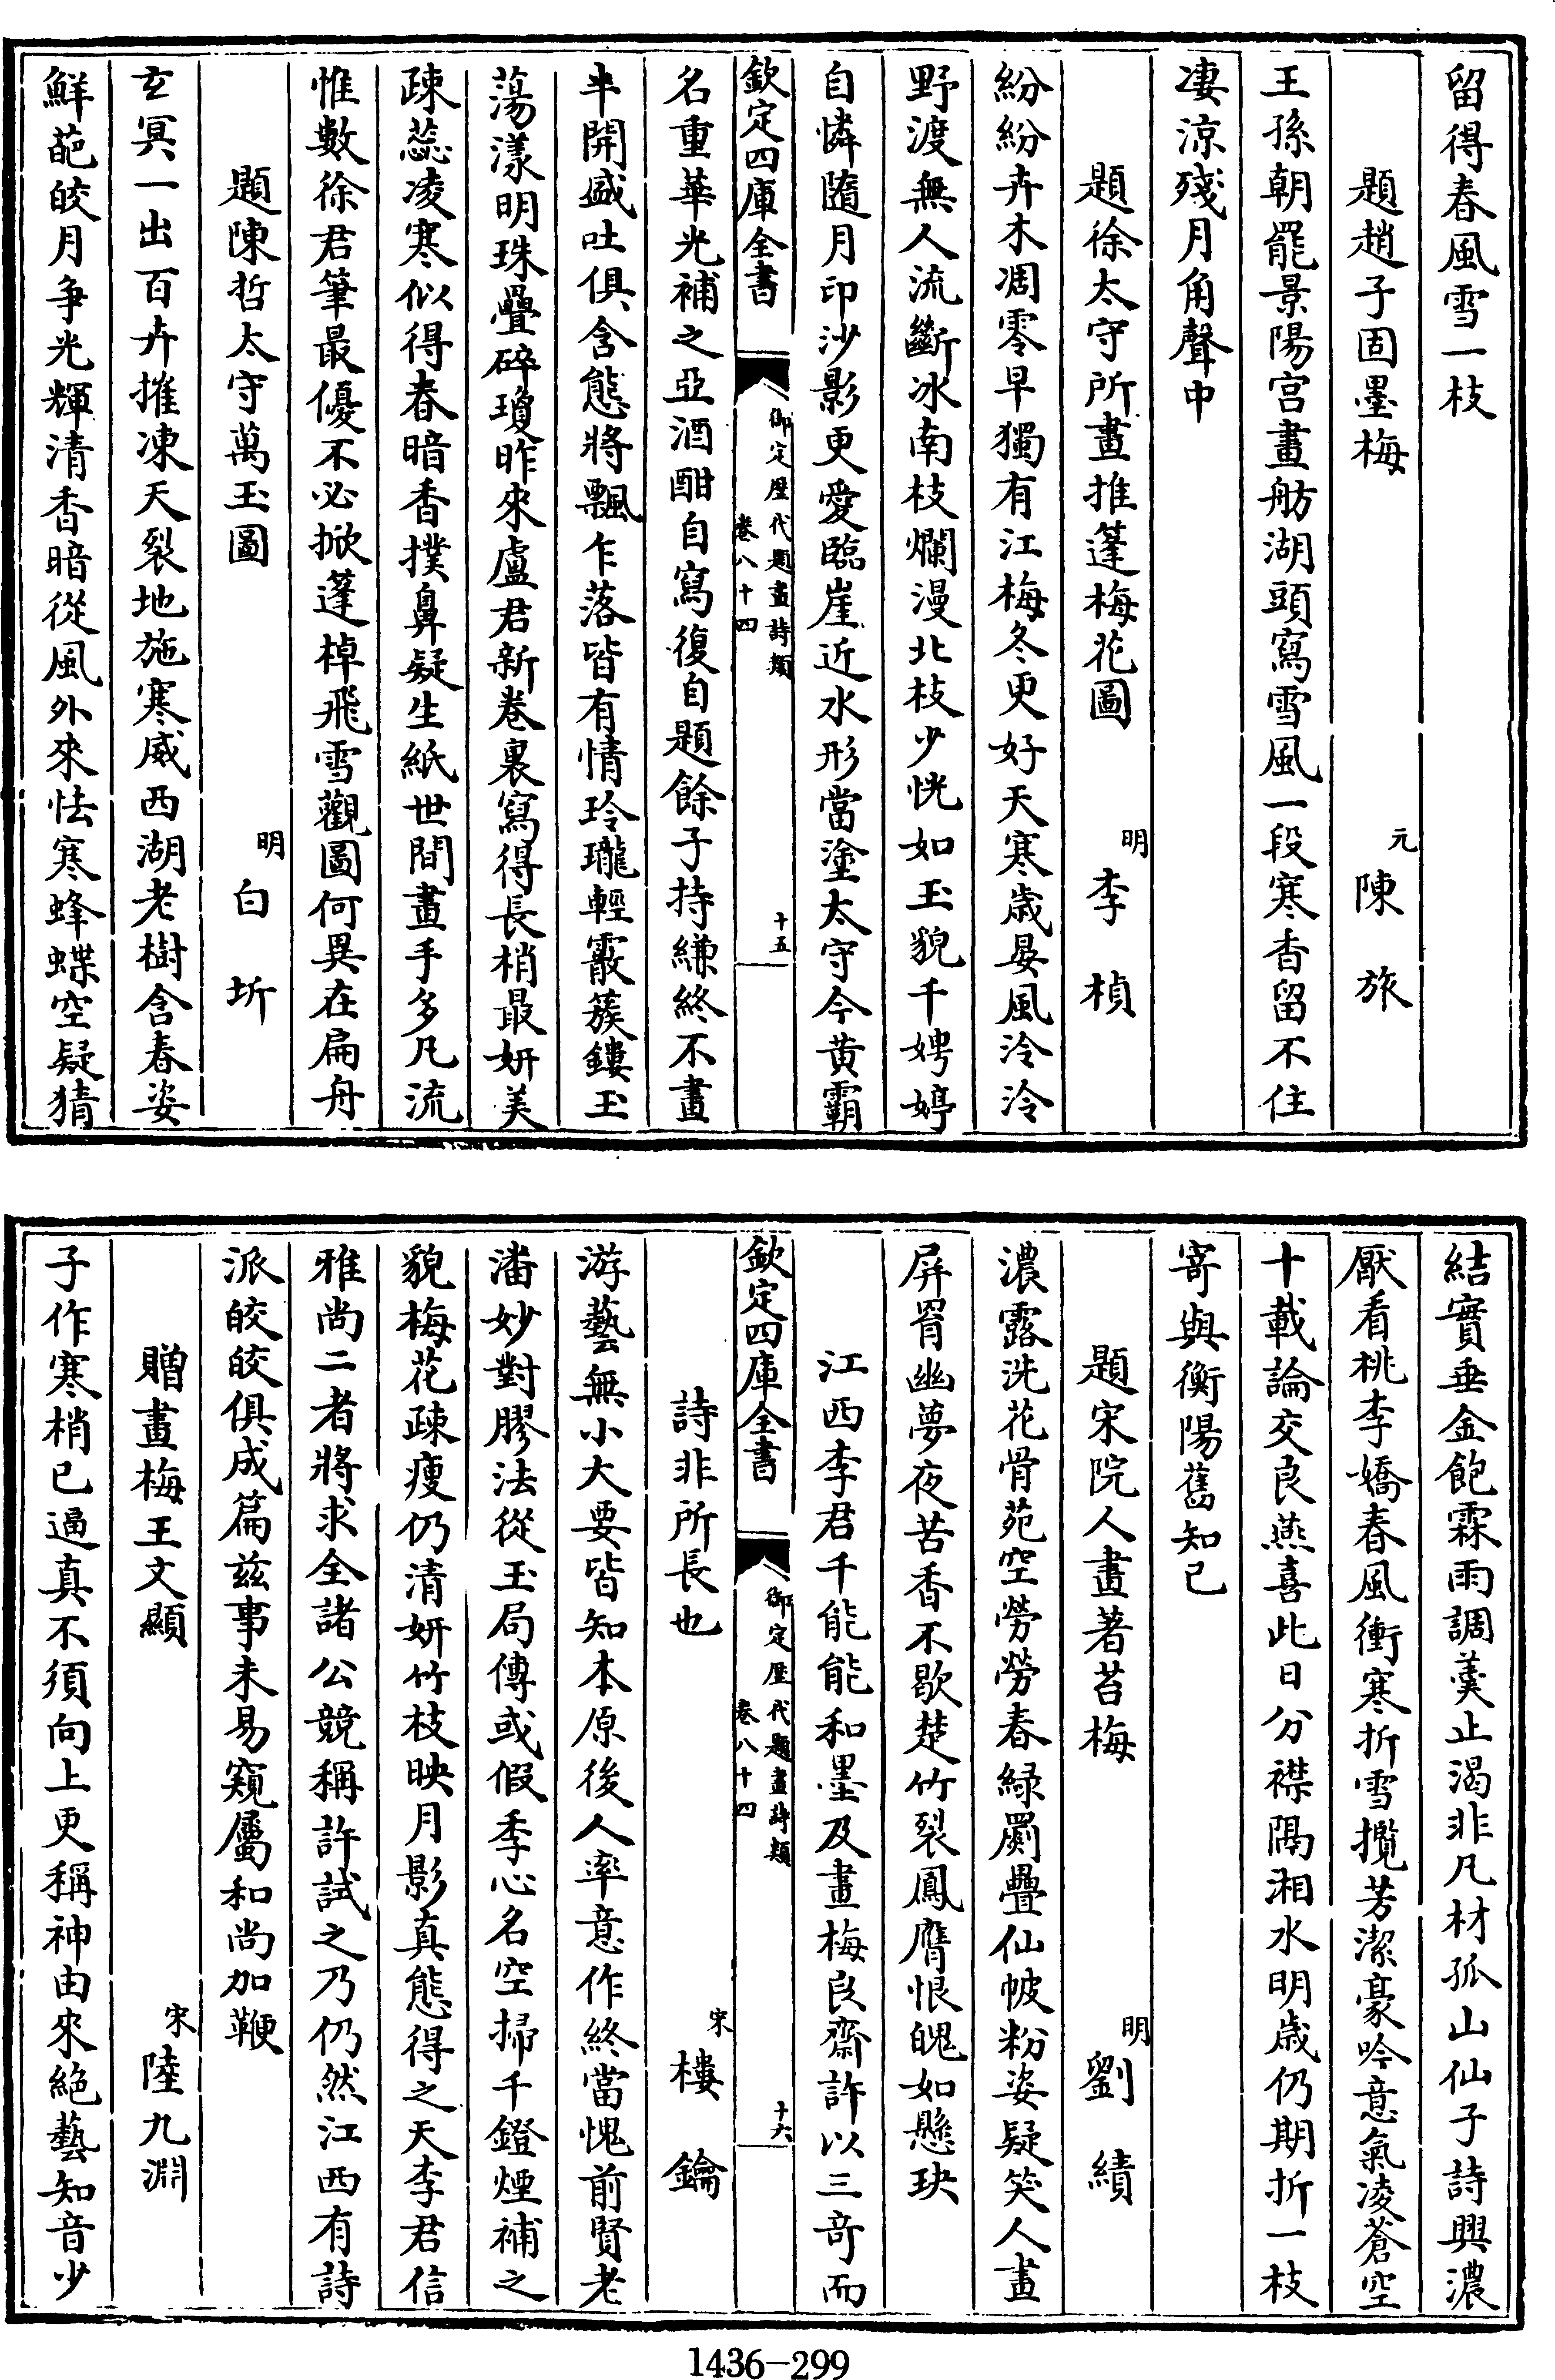 留得春風雪一枝
題趙子固墨梅　元陳旅
王孫朝罷景陽宫畫舫湖頭寫雪風一段寒香留不住
凄涼殘月角聲中
題徐太守所畫推蓬梅花圖　明李楨
紛紛卉木凋零早獨有江梅冬更好天寒歲晏風泠泠
野渡無人流斷冰南枝爛漫北枝少恍如玉貌千娉婷
自憐隨月印沙影更愛臨崖近水形當塗太守今黄霸
欽定四庫全書　御定歷代題畫詩類卷八十四　十五
名重華光補之亞酒酣自寫復自題餘子持縑終不畫
半開盛吐俱含態將飄乍落皆有情玲瓏輕霰簇鏤玉
蕩漾明珠疊碎瓊昨來盧君新卷裏寫得長梢最妍美
疎蕊凌寒似得春暗香撲鼻疑生紙世間畫手多凡流
惟數徐君筆最優不必掀蓬棹飛雪觀圖何異在扁舟
題陳哲太守萬玉圖　明白圻
玄冥一出百卉摧凍天裂地施寒威西湖老樹含春姿
鮮葩皎月争光輝清香暗從風外來怯寒蜂蝶空疑猜
結實垂金飽霖雨調羮止渴非凡材孤山仙子詩興濃
厭看桃李嬌春風衝寒折雪攬芳潔豪吟意氣凌蒼空
十載論交良燕喜此日分襟隔湘水明歲仍期折一枝
寄與衡陽舊知己
題宋院人畫著苔梅　明劉績
濃露洗花骨苑空勞勞春緑罽疊仙帔粉姿疑笑人畫
屏罥幽夢夜苦香不歇楚竹裂鳳膺恨魄如懸玦
江西李君千能能和墨及畫梅良齋許以三奇而
欽定四庫全書　御定歷代題畫詩類卷八十四　十六
詩非所長也　宋樓鑰
游藝無小大要皆知本原後人率意作終當愧前賢老
潘妙對膠法從玉局傳或假季心名空掃千鐙煙補之
貌梅花疎瘦仍清妍竹枝映月影真態得之天李君信
雅尚二者將求全諸公競稱許試之乃仍然江西有詩
派皎皎俱成篇兹事未易窺屬和尚加鞭
贈畫梅王文顯　宋陸九淵
子作寒梢已逼真不須向上更稱神由來絶藝知音少
1436-299